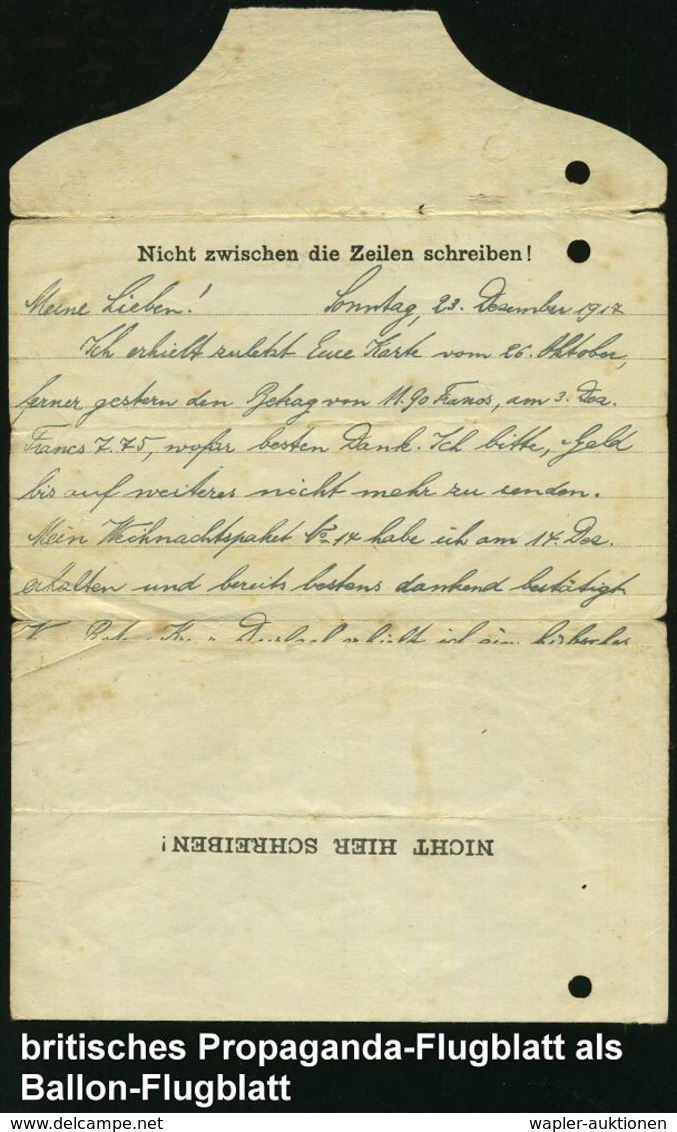 Nicht zwischen die Zeilen schreiben!
Meine Lieben! Sonntag, 23. Dezember 1917
Ich erhielt zuletzt Eure Karte vom 26. Oktober,
ferner gestern den Betrag von 11.90 Francs, am 3. Dez.
Francs 7.75, wofür besten Dank. Ich bitte, Geld
bis auf weiteres nicht mehr zu senden.
Mein Weihnachtspaket No 14 habe ich am 14. Dez.
erhalten und bereits bestens dankend bestätigt
erhielt ich ein
NICHT HIER SCHREIBEN!
britisches Propaganda-Flugblatt als
Ballon-Flugblatt
www.delcampe.net wapler-auktionen